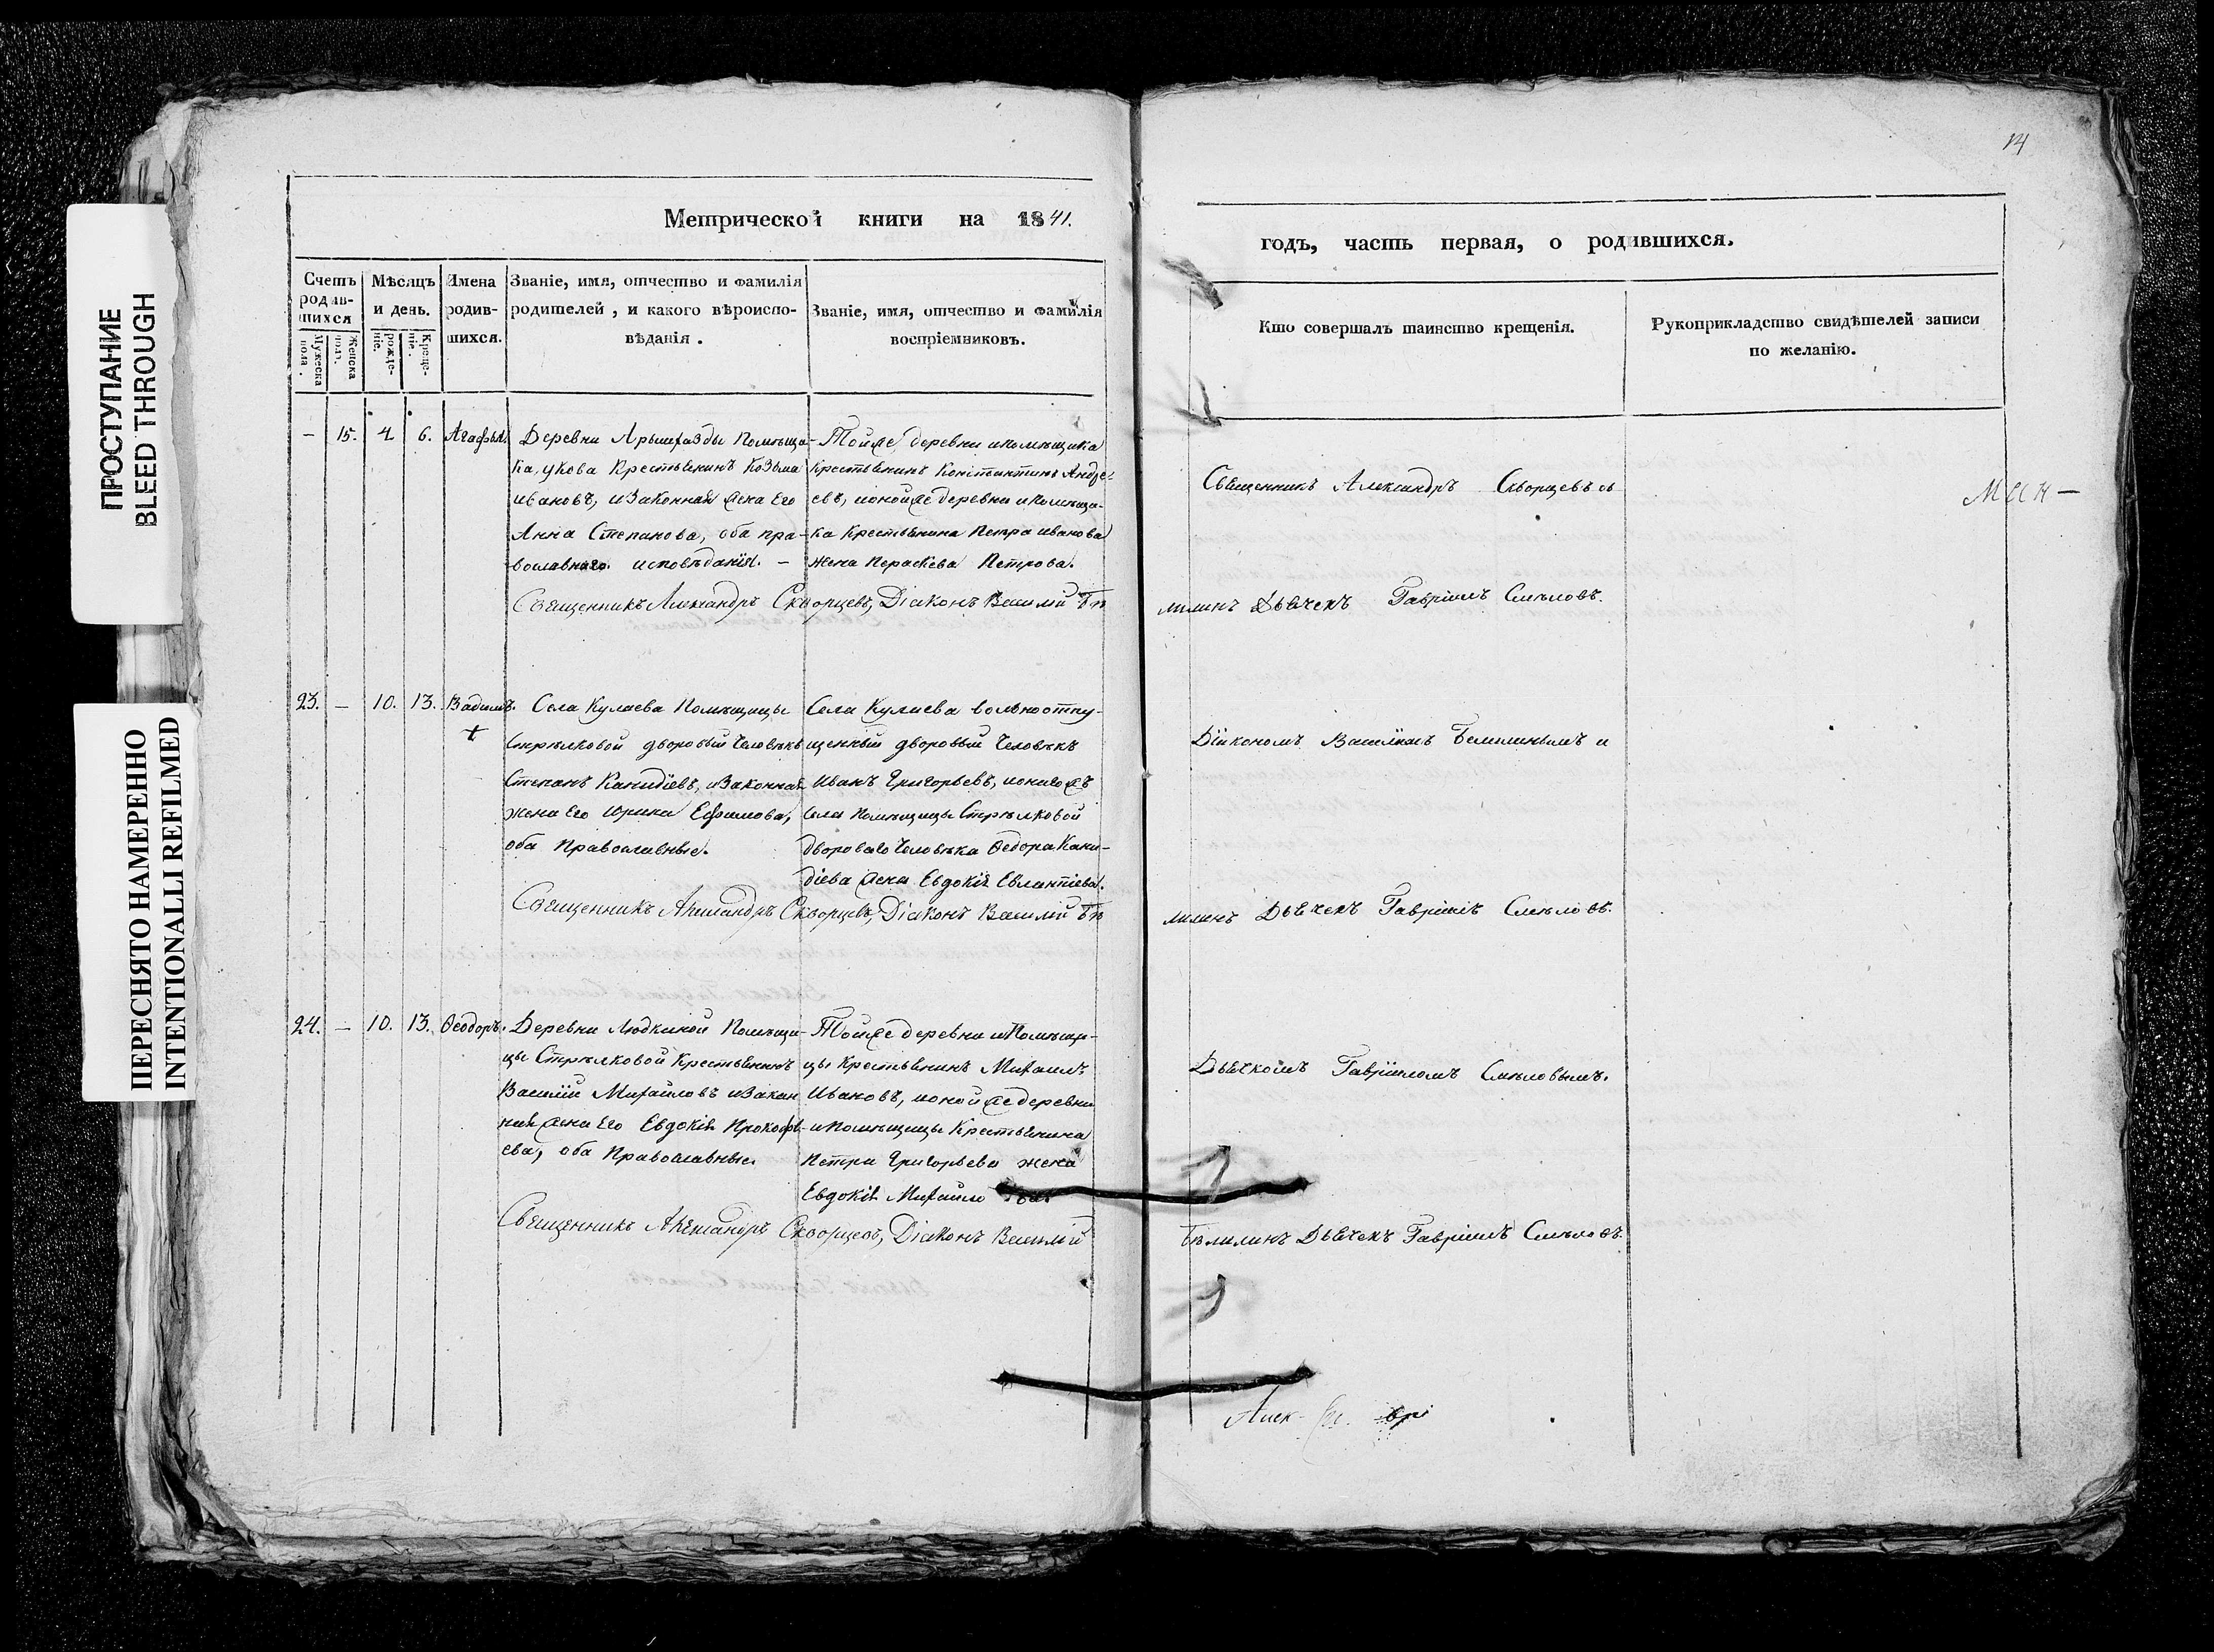 ПРОСТУПАНИЕ
BLEED THROUGH
ПЕРЕСНЯТО НАМЕРЕННО
INTENTIONALLI REFILMED
14
Метрической книги на 1841.
годъ, часть первая, о родившихся.
Счетъ родив-шихся
Мужеска пола.
Женска полъ.
Мѣсяцъ и день.
рожде-ніе.
Креще-ніе.
Имена родив-шихся.
Званіе, имя, отчество и фамилія
родителей, и какого вѣроиспо-
вѣданія.
Званіе, имя, отчество и фамилія
воспріемниковъ.
Кто совершалъ таинство крещенія.
Рукоприкладство свидѣтелей записи
по желанію.
— 15. 4 6.
Деревни помѣщи-
Крестьянинъ Козьма
Ивановъ, и законная жена его
Анна Степанова, оба пра-
вославнаго исповѣданія. —
Тойже деревни и помѣщика
крестьянинъ Константинъ Андре-
евъ, и оной же деревни и помѣщи-
ка крестьянина Петра Иванова
жена Параскева Петрова.
Священникъ Александръ Скворцевъ
Священникъ Александръ Скворцевъ, Діаконъ Василій Бѣ
лилинъ Дьячекъ Гавріилъ Смѣловъ.
23. — 10. 13. Вадимъ.
Села Кулаева Помѣщицы
Стрѣлковой дворовый человѣкъ
Степанъ и законная
жена его Ефимова,
оба православные.
Села Кулаева вольноотпу-
щенный дворовый человѣкъ
Иванъ Григорьевъ, и онаго жъ
села помѣщицы Стрѣлковой
двороваго человѣка Ѳедора Кани-
діева жена Евдокія
Діакономъ Василіемъ Бѣлилинымъ и
Священникъ Александръ Скворцевъ, Діаконъ Василій Бѣ
лилинъ Дьячекъ Гавріилъ Смѣловъ.
24. — 10. 13. Ѳеодоръ.
Деревни Людкиной Помѣщи-
цы Стрѣлковой крестьянинъ
Василій Михайловъ и закон
ная жена его Евдокія Прокофь-
ева, оба православные.
Тойже деревни и помѣщи-
цы крестьянинъ Михаилъ
Ивановъ, и оной же деревни
и помѣщицы крестьянина
Петра Григорьева жена
Евдокія Михайлова
Дьячкомъ Гавріиломъ Смѣловымъ.
Священникъ Александръ Скворцевъ, Діаконъ Василій
Бѣлилинъ Дьячекъ Гавріилъ Смѣловъ.